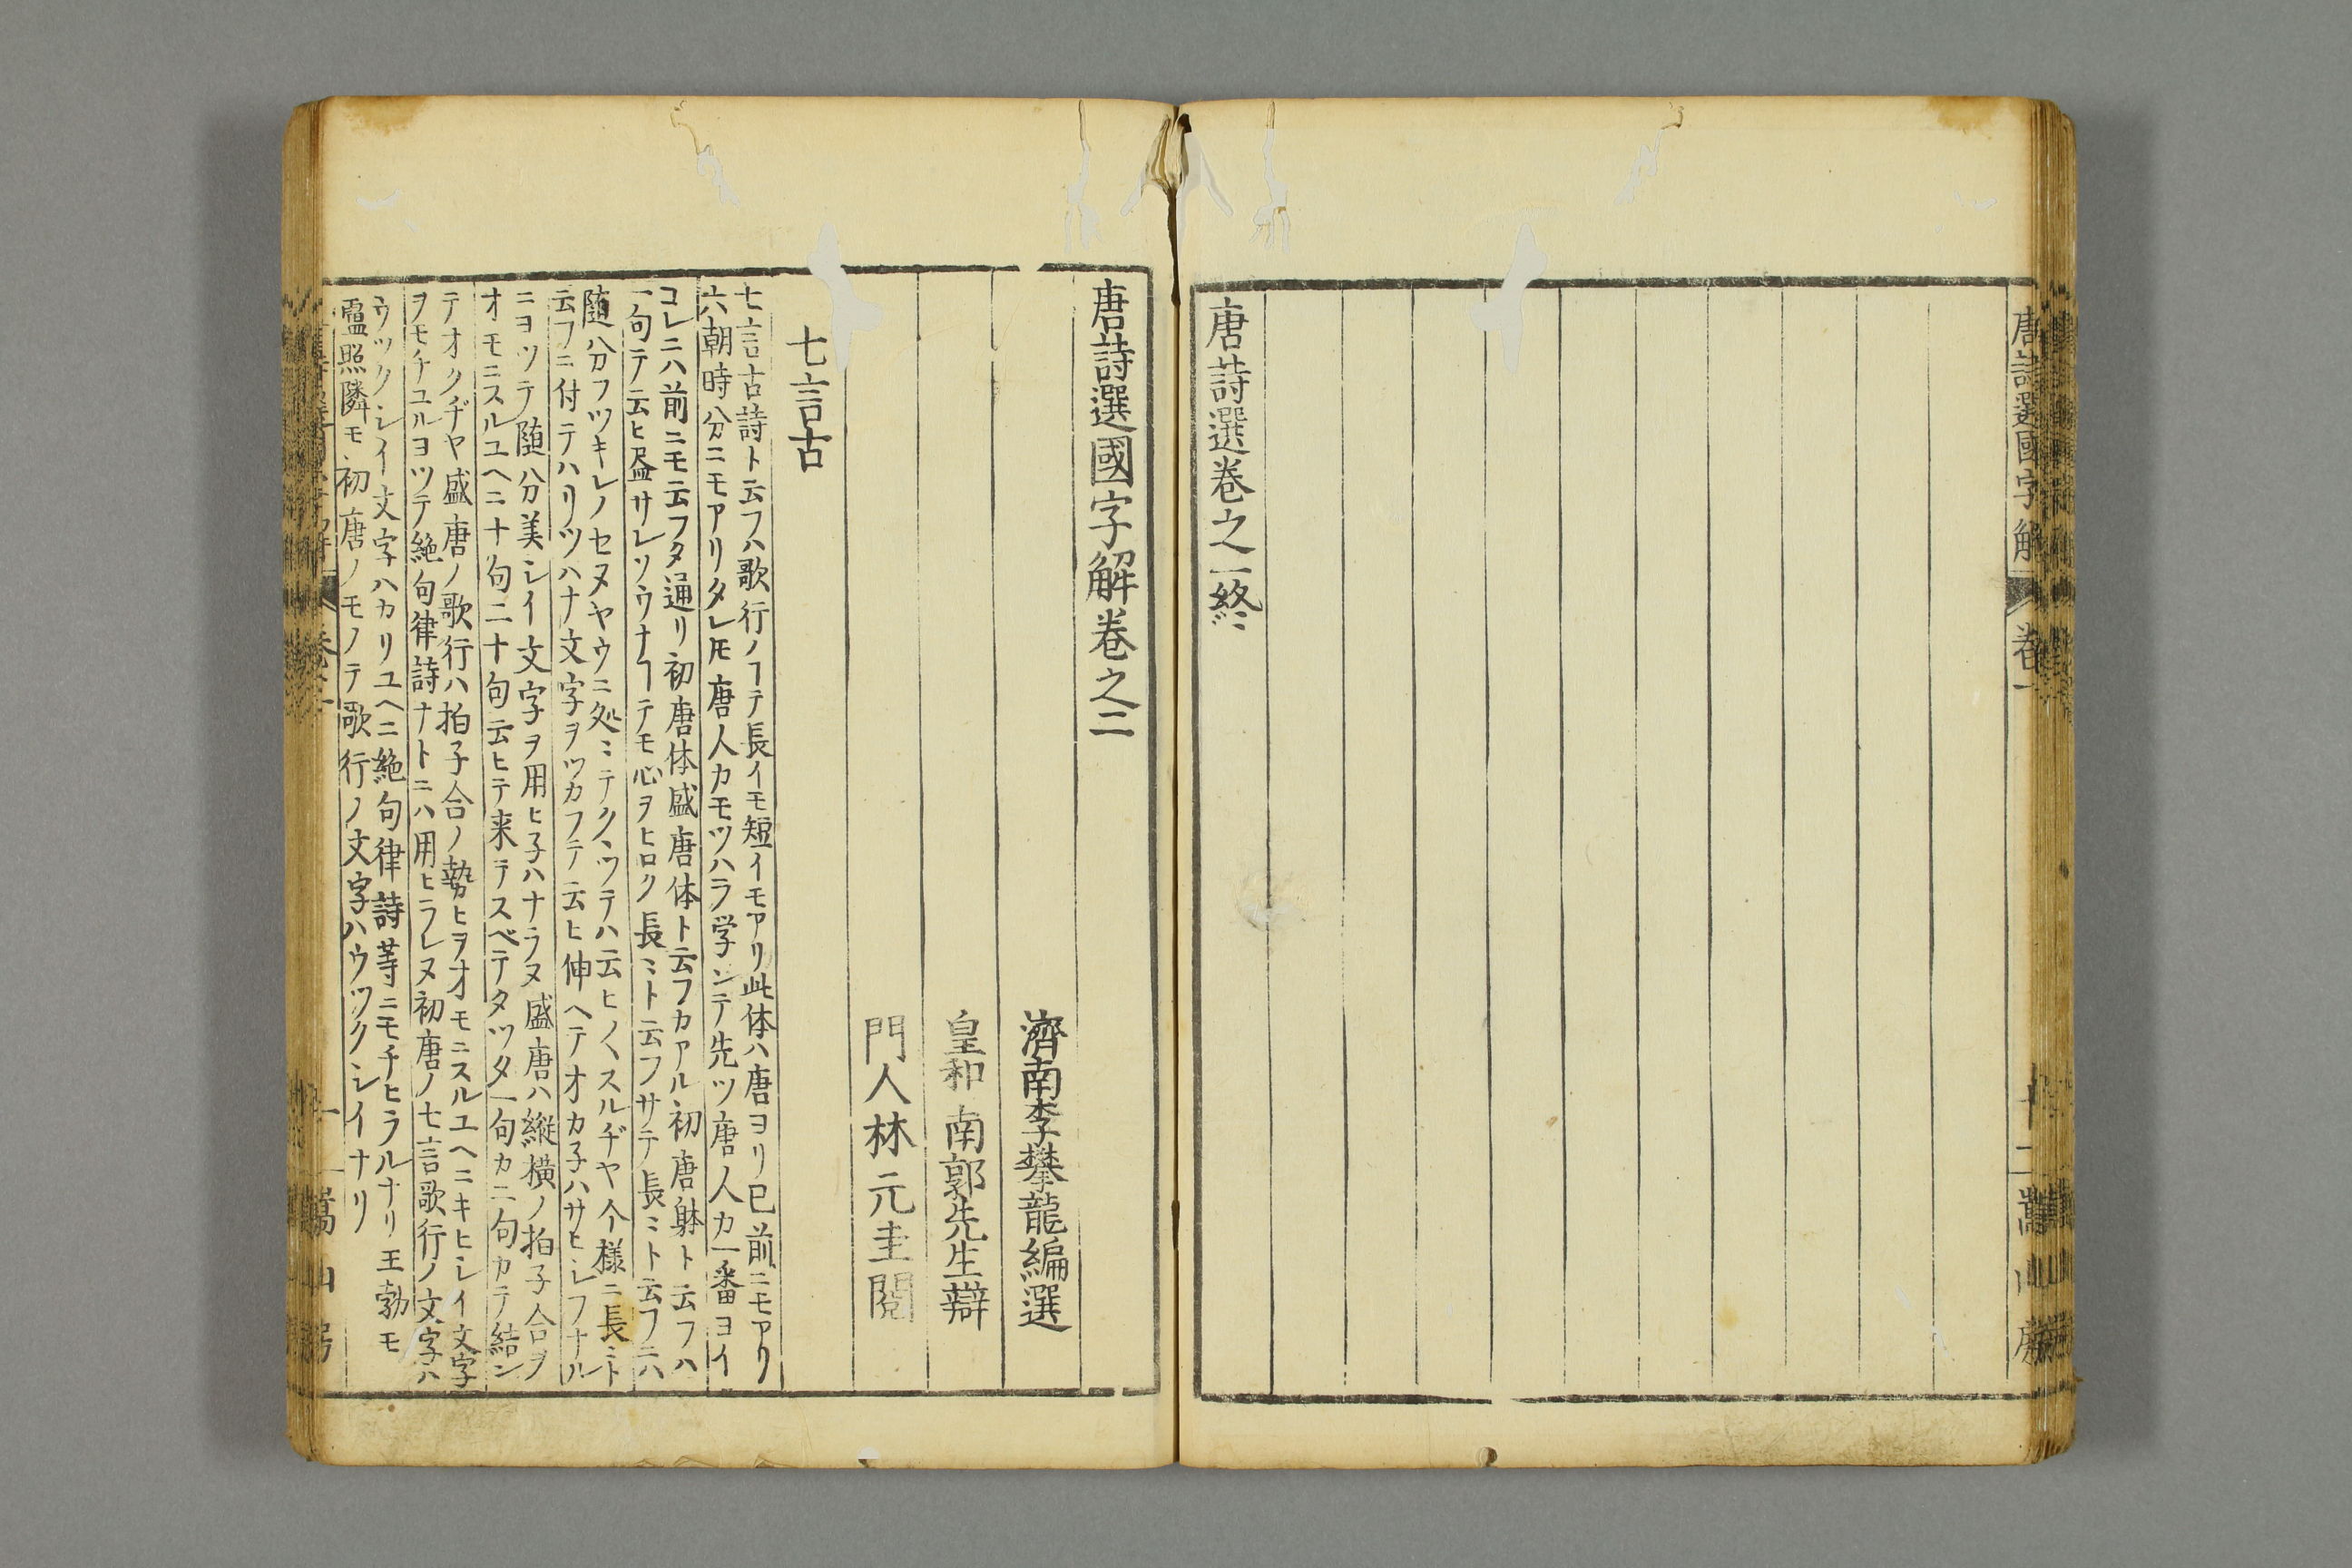 唐詩選國字解
卷一
十二
嵩山房
唐詩選卷之一終
唐詩選國字解卷之二
濟南李攀龍編選
皇和 南郭先生辯
門人林元圭閲
七言古
七言古詩ト云フハ歌行ノヿテ長イモ短イモアリ此体ハ唐ヨリ已前ニモアリ
六朝時分ニモアリタレ𪜈唐人カモツハラ学ンテ先ツ唐人カ一番ヨイ
コレニハ前ニモ云フタ通リ初唐体盛唐体ト云フカアル初唐躰ト云フハ
一句テ云ヒ盡サレソウナヿテモ心ヲヒロク長ミト云フサテ長ミト云フニハ
随分フツキレノセヌヤウニ処ミテクヽツテハ云ヒ〳〵スルヂヤ今様ニ長ミト
云フニ付テハリツハナ文字ヲツカフテ云ヒ伸ヘテオカ子ハサヒシフナル
ニヨツテ随分美シイ文字ヲ用ヒ子ハナラヌ盛唐ハ縦横ノ拍子合ヲ
オモニスルユヘニ十句二十句云ヒテ来テスベテタツタ一句カニ句カテ結ン
テオクヂヤ盛唐ノ歌行ハ拍子合ノ勢ヒヲオモニスルユヘニキヒシイ文字
ヲモチユルヨツテ絶句律詩ナトニハ用ヒラレヌ初唐ノ七言歌行ノ文字ハ
ウツクシイ文字ハカリユヘニ絶句律詩等ニモチヒラルナリ王勃モ
盧照隣モ初唐ノモノテ歌行ノ文字ハウツクシイナリ
嵩山房